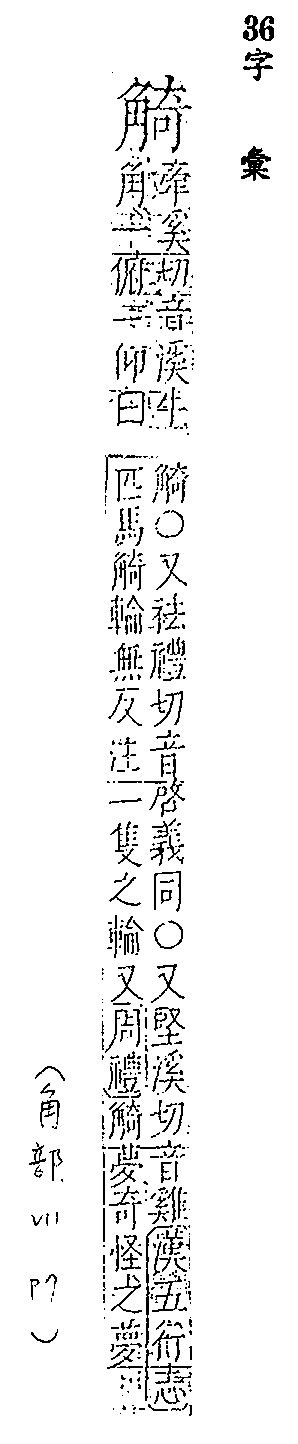 36字彙
觭
牽溪切音溪牛
角一俯一仰曰
觭〇又袪禮切音啓義同〇又堅溪切音雞漢五行志
匹馬觭輪無反注一隻之輪又周禮觭夢奇怪之夢
(角部 VII P7)